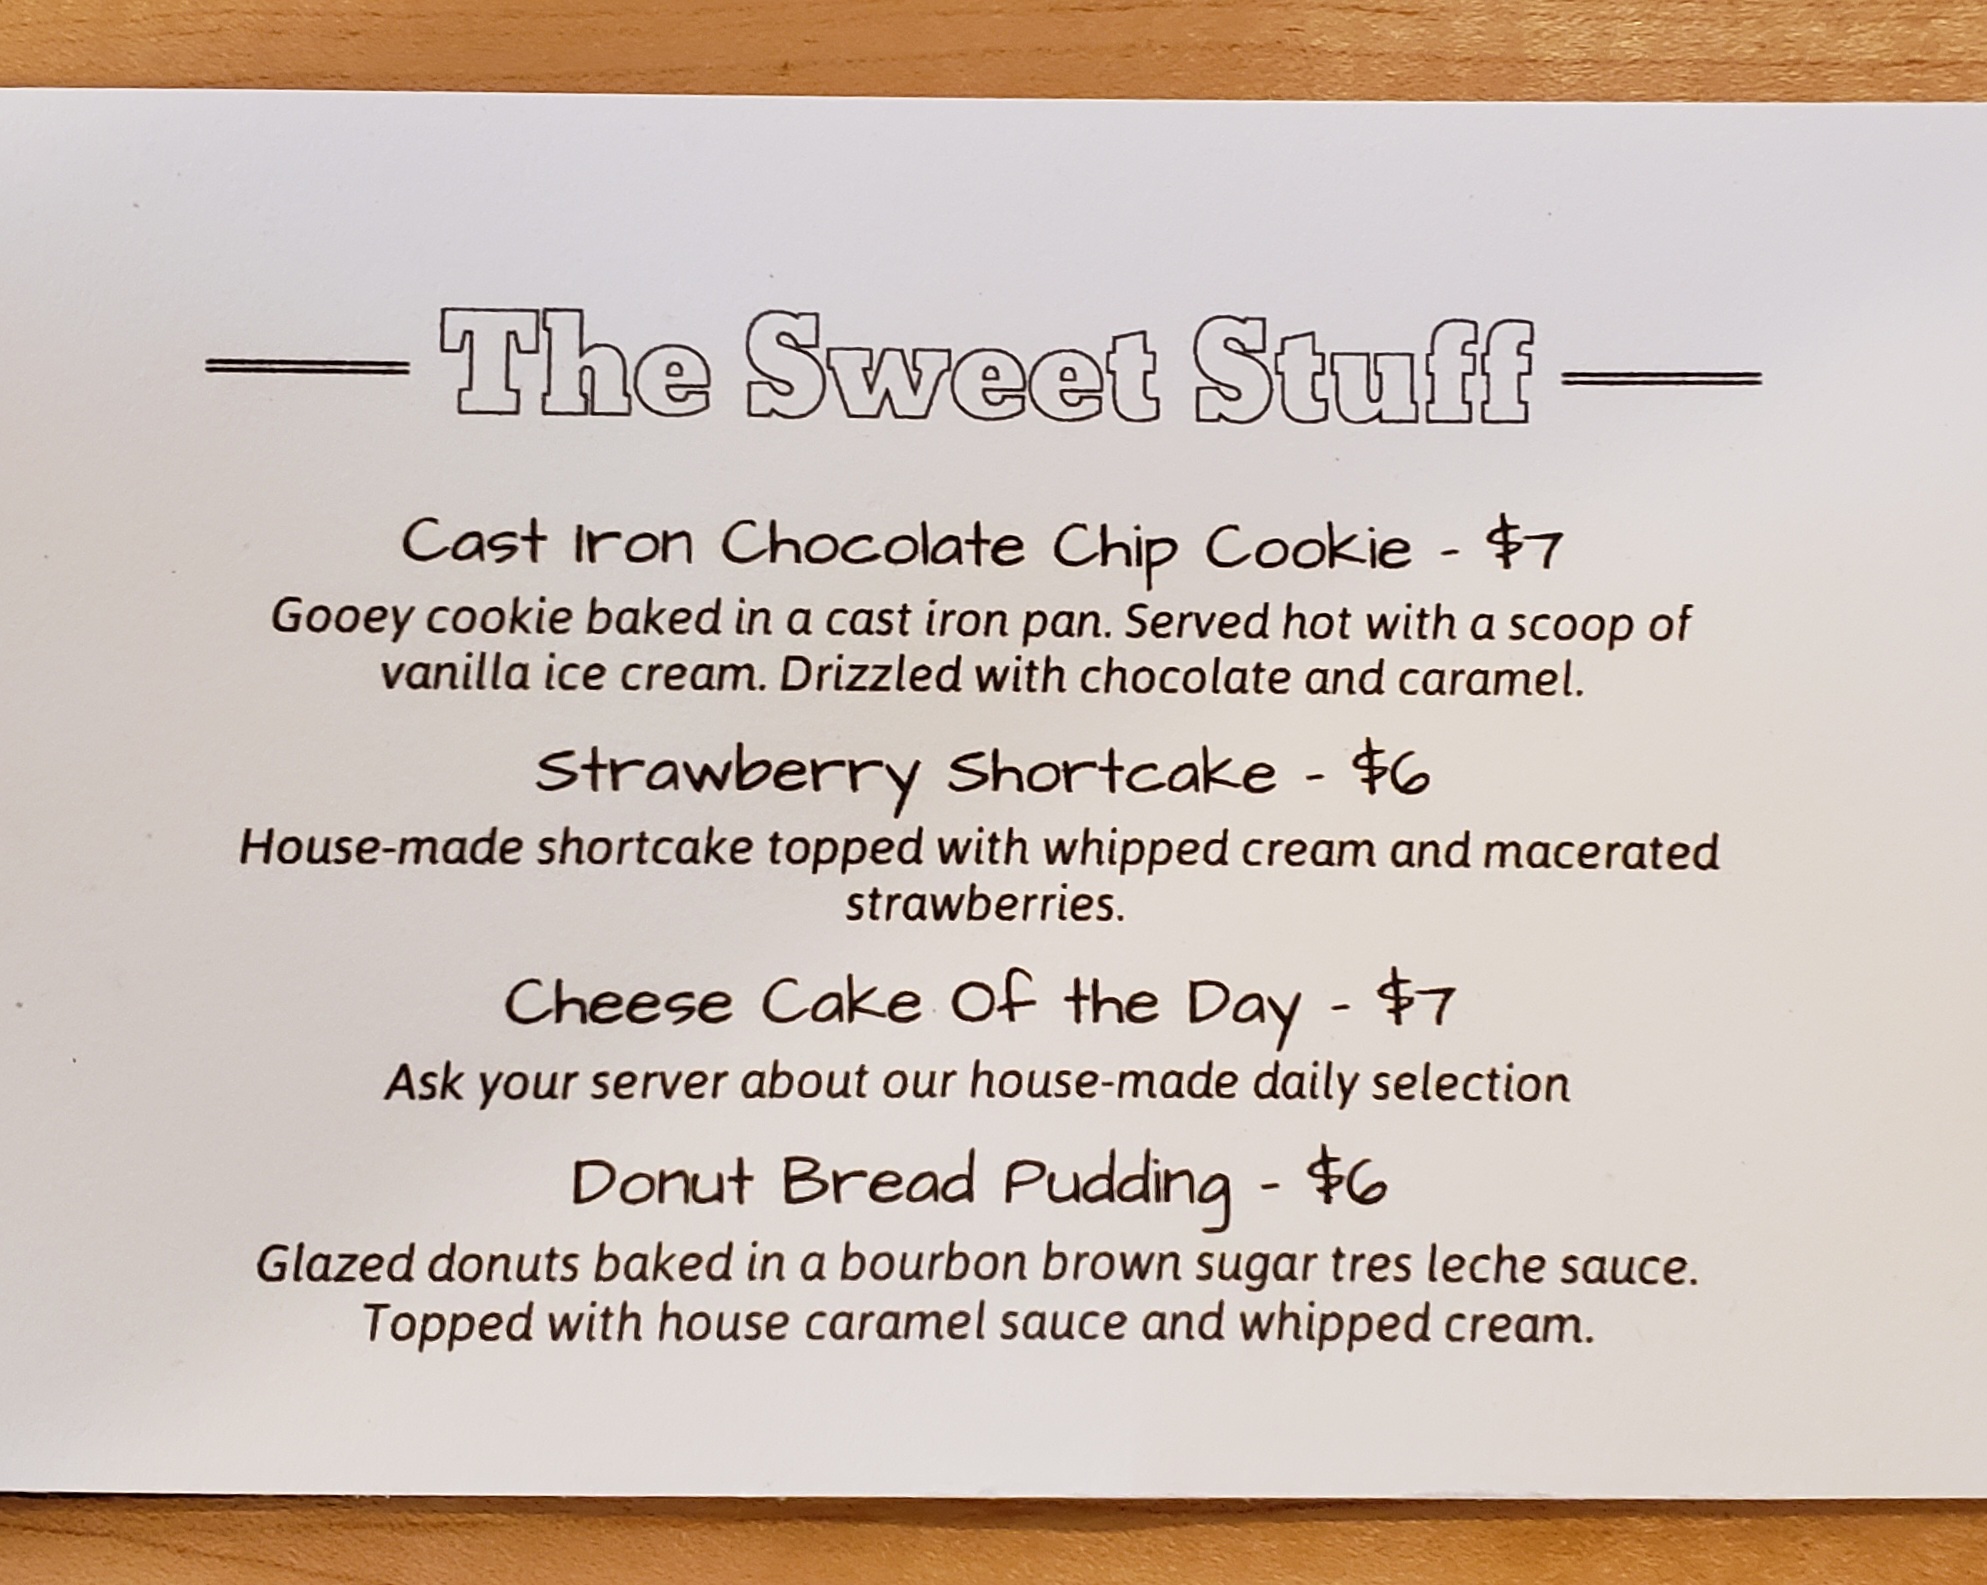 The Sweet Stuff
Cast Iron Chocolate Chip Cookie - $7
Gooey cookie baked in a cast iron pan. Served hot with a scoop of
vanilla ice cream. Drizzled with chocolate and caramel.
Strawberry Shortcake - $6
House-made shortcake topped with whipped cream and macerated
strawberries.
Cheese Cake Of the Day - $7
Ask your server about our house-made daily selection
Donut Bread Pudding - $6
Glazed donuts baked in a bourbon brown sugar tres leche sauce.
Topped with house caramel sauce and whipped cream.